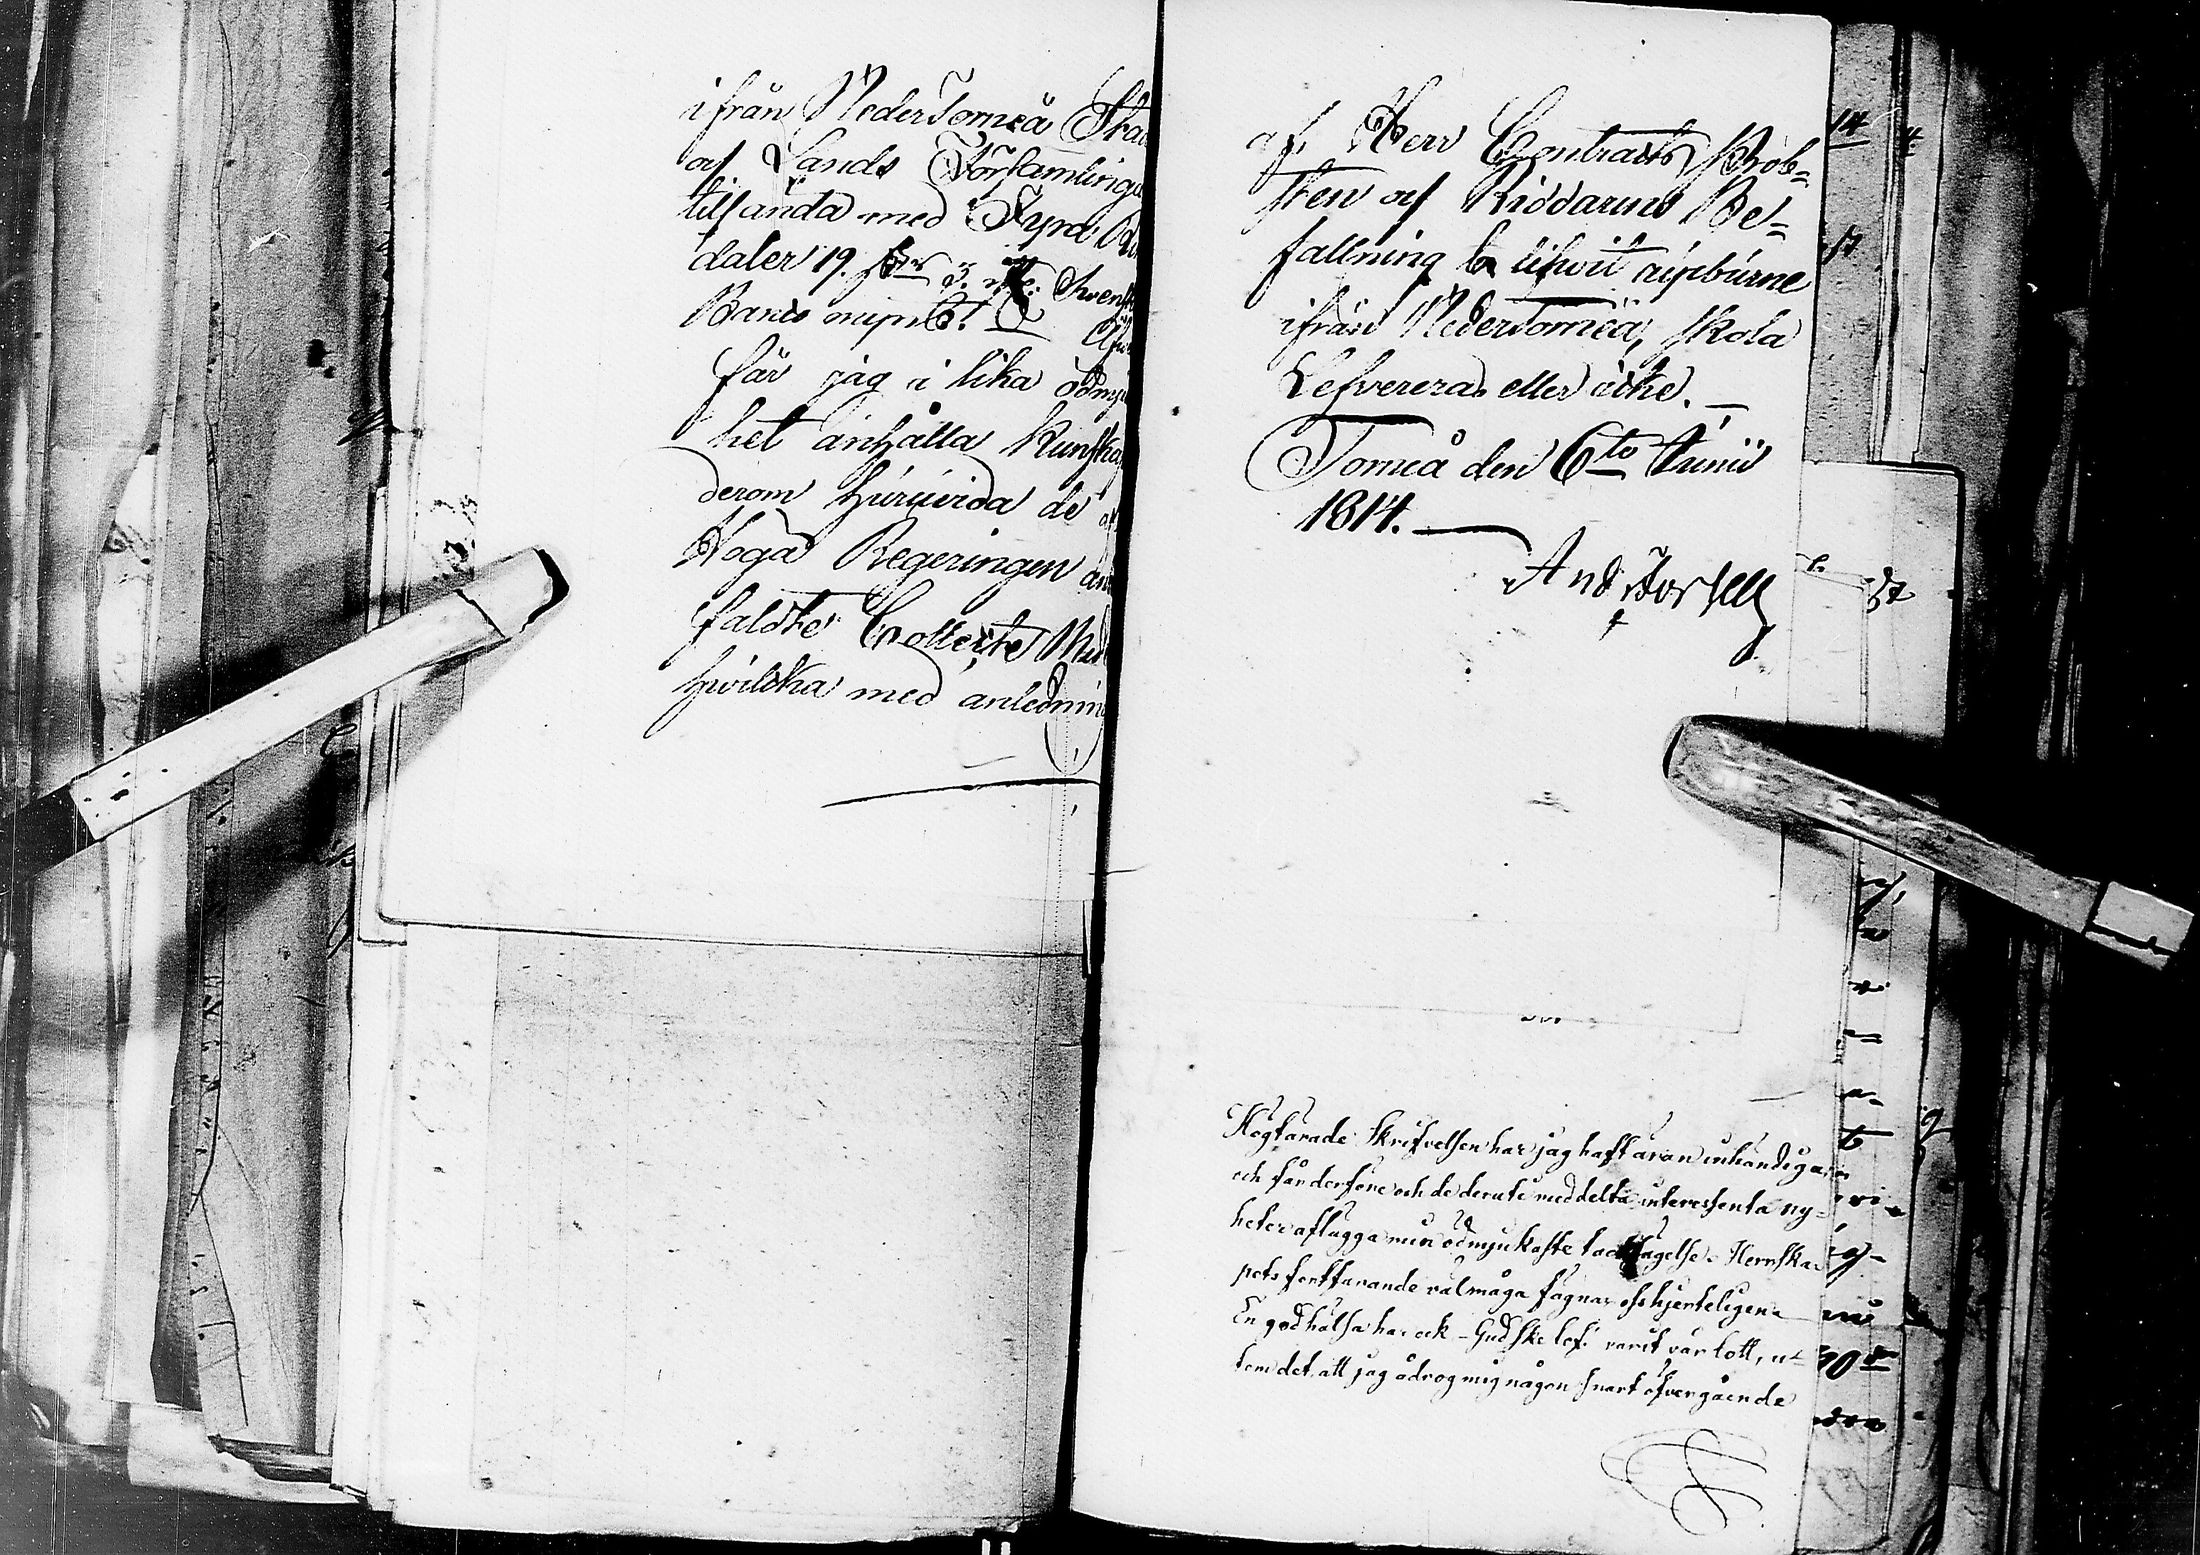 ifrån NederTorneå Sta
och Lands Församlinga
till ända med Fyra Rik
daler 19. sk. 3. Svensk
Banco mynt!
får jag i lika ödmju
het anhålla kunska
derom huruvida de af
Höga Regeringen an
faldte Collecte Med
hvilcka med anledning
af Herr Contracts Prob-
sten och Riddarens Be-
fallning blifvit upburne
ifrån NederTorneå, skola
Lefvereras eller icke. —
Torneå den 6to Junii
1814. —
And Forsell
Högtärade skrifvelsen har jag haft äran inhändiga
och får derföre och de deruti meddelta interessenta ny-
heter aflägga min ödmjukaste tacksägelse. Herrska-
pets fortfarande välmåga fägnar oss hjerteligen.
En god hälsa har ock – Gud ske lof! varit vår lott, u-
tom det, att jag ådrog mig någon snart öfvergående